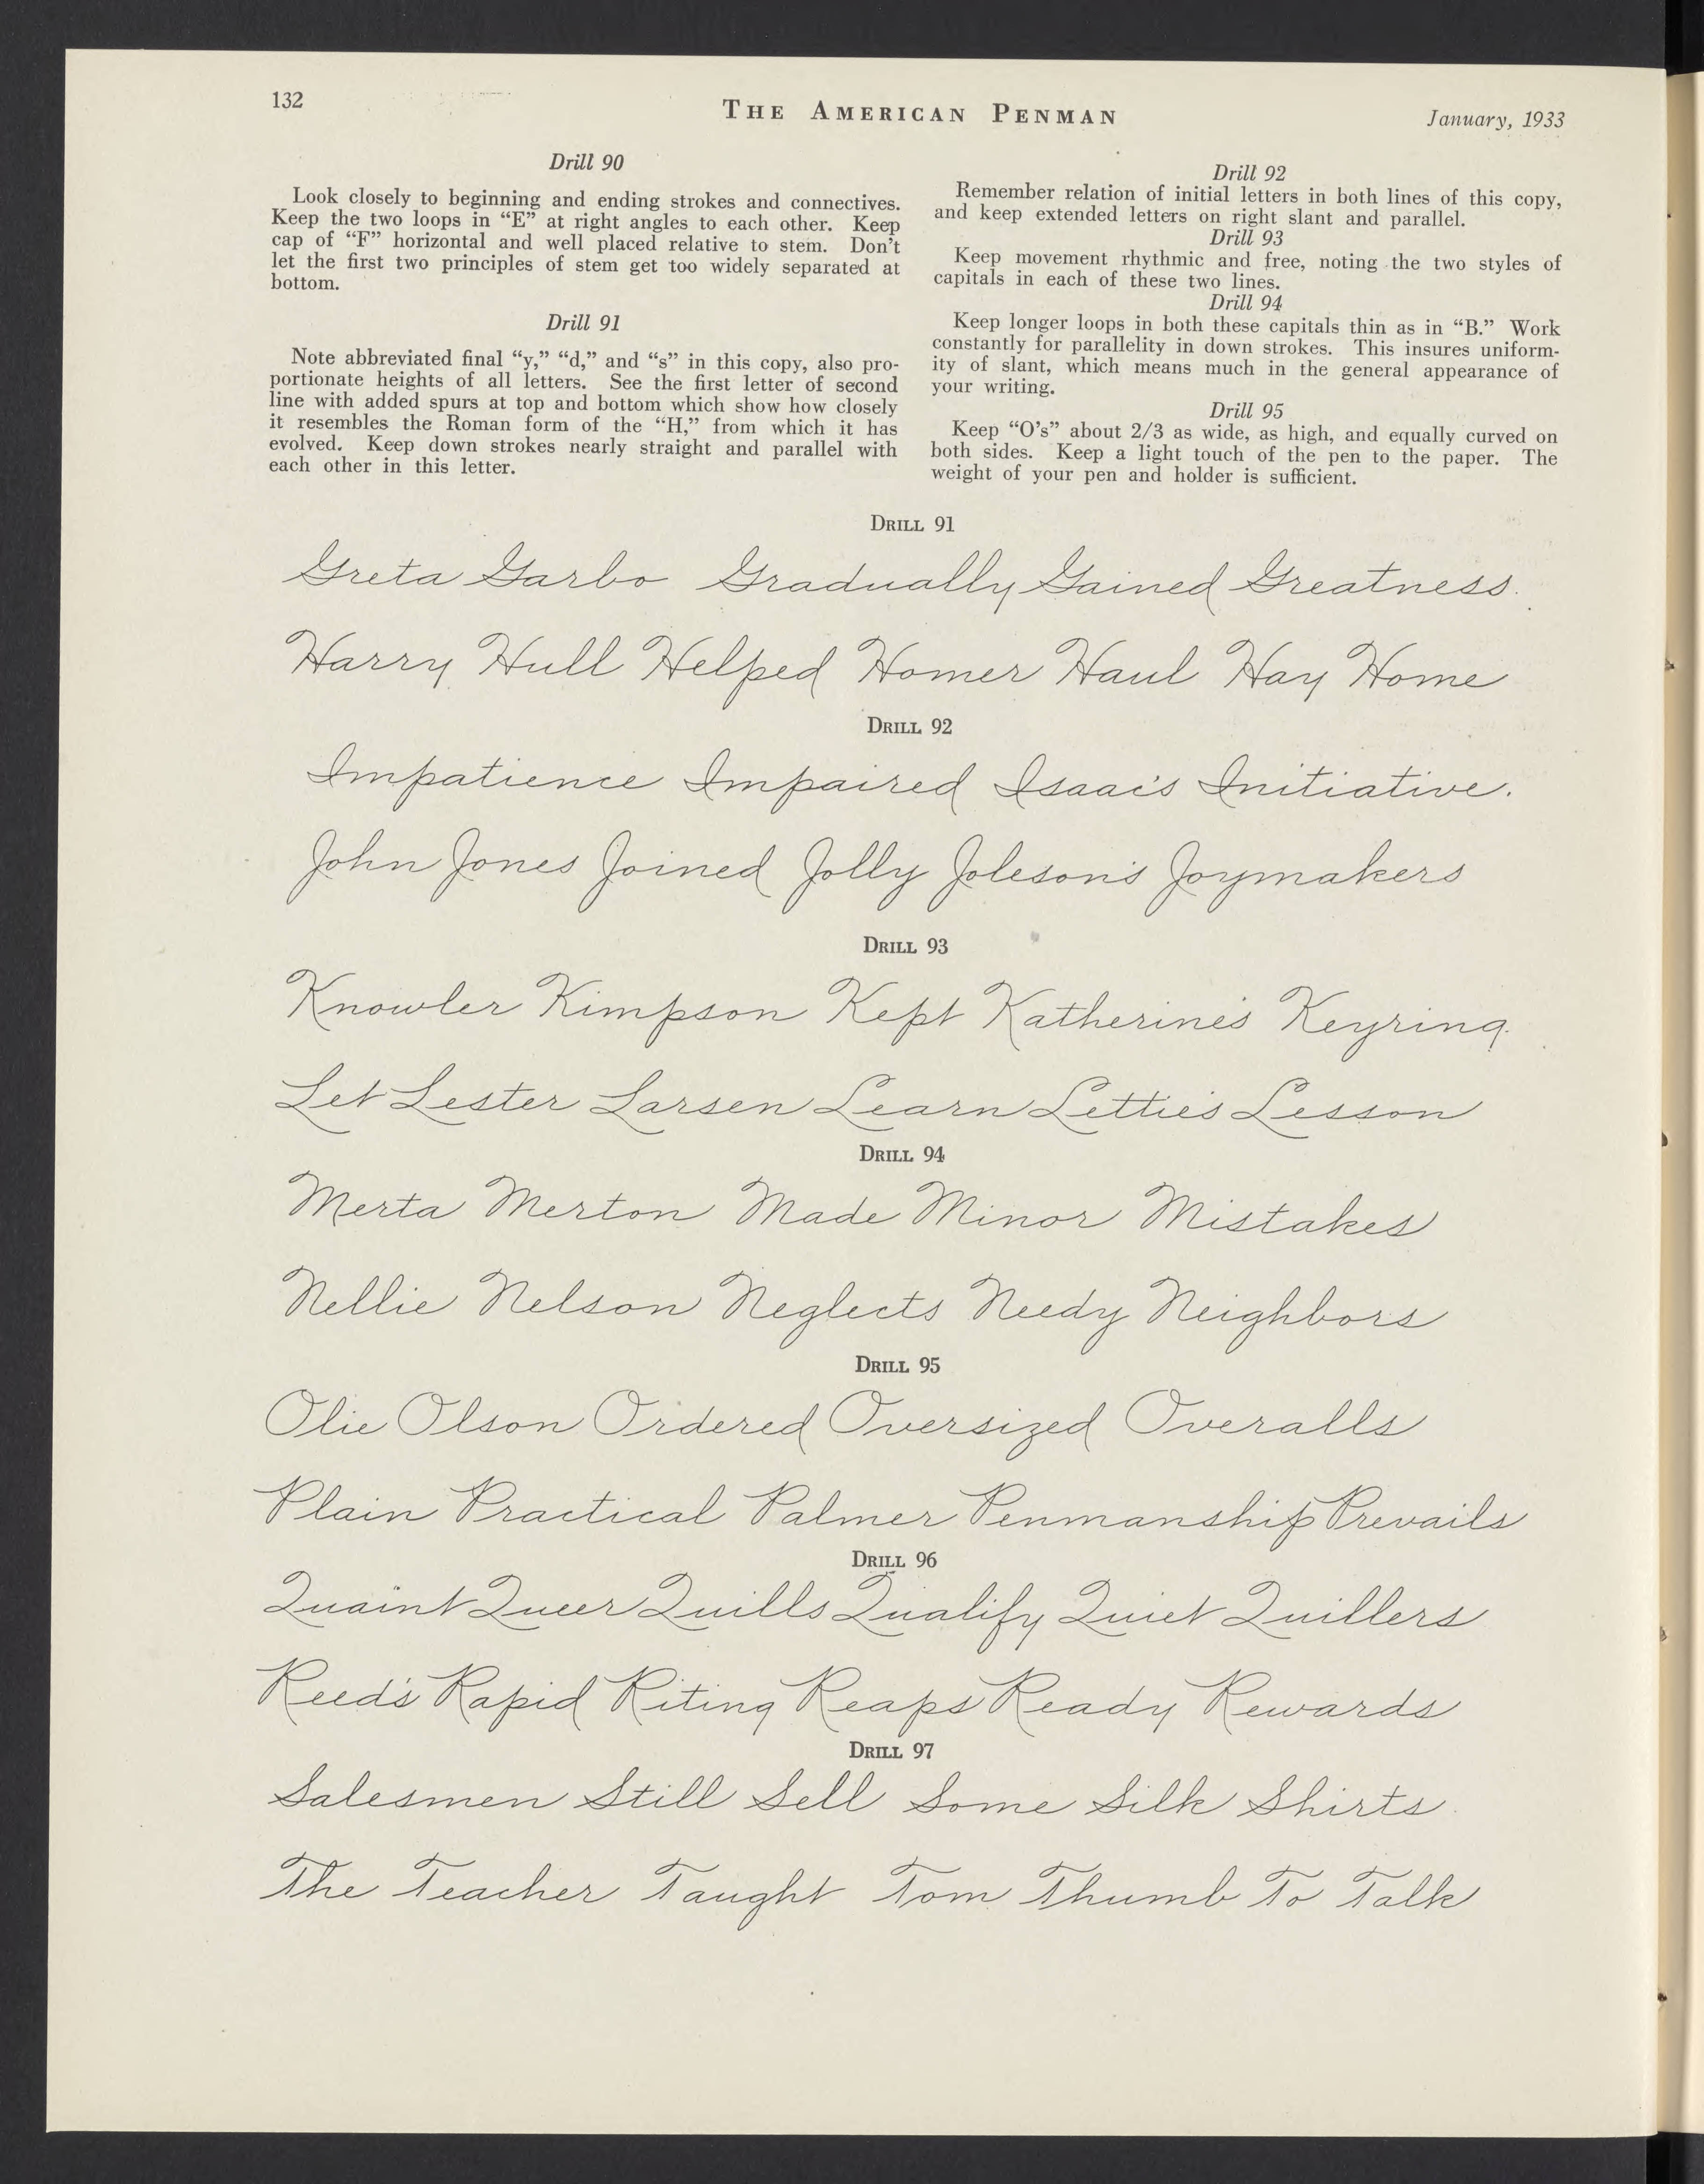 132
THE AMERICAN PENMAN
January, 1933
Drill 90
Look closely to beginning and ending strokes and connectives.
Keep the two loops in “E” at right angles to each other. Keep
cap of “F” horizontal and well placed relative to stem. Don’t
let the first two principles of stem get too widely separated at
bottom.
Drill 91
Note abbreviated final “y,” “d,” and “s” in this copy, also pro-
portionate heights of all letters. See the first letter of second
line with added spurs at top and bottom which show how closely
it resembles the Roman form of the “H,” from which it has
evolved. Keep down strokes nearly straight and parallel with
each other in this letter.
Drill 92
Remember relation of initial letters in both lines of this copy,
and keep extended letters on right slant and parallel.
Drill 93
Keep movement rhythmic and free, noting the two styles of
capitals in each of these two lines.
Drill 94
Keep longer loops in both these capitals thin as in “B.” Work
constantly for parallelity in down strokes. This insures uniform-
ity of slant, which means much in the general appearance of
your writing.
Drill 95
Keep “O’s” about 2/3 as wide, as high, and equally curved on
both sides. Keep a light touch of the pen to the paper. The
weight of your pen and holder is sufficient.
DRILL 91
Greta Garbo Gradually Gained Greatness.
Harry Hull Helped Homer Haul Hay Home
DRILL 92
Impatience Impaired Isaac's Initiative.
John Jones Joined Jolly Joleson's Joymakers
DRILL 93
Knowler Kimpson Kept Katherine's Keyring.
Let Lester Larsen Learn Lettie's Lesson
DRILL 94
Merta Merton Made Minor Mistakes
Nellie Nelson Neglects Needy Neighbors
DRILL 95
Olie Olson Ordered Oversized Overalls
Plain Practical Palmer Penmanship Prevails
DRILL 96
Quaint Queer Quills Qualify Quiet Quillers
Reed's Rapid Riting Reaps Ready Rewards
DRILL 97
Salesmen Still Sell Some Silk Shirts
The Teacher Taught Tom Thumb To Talk